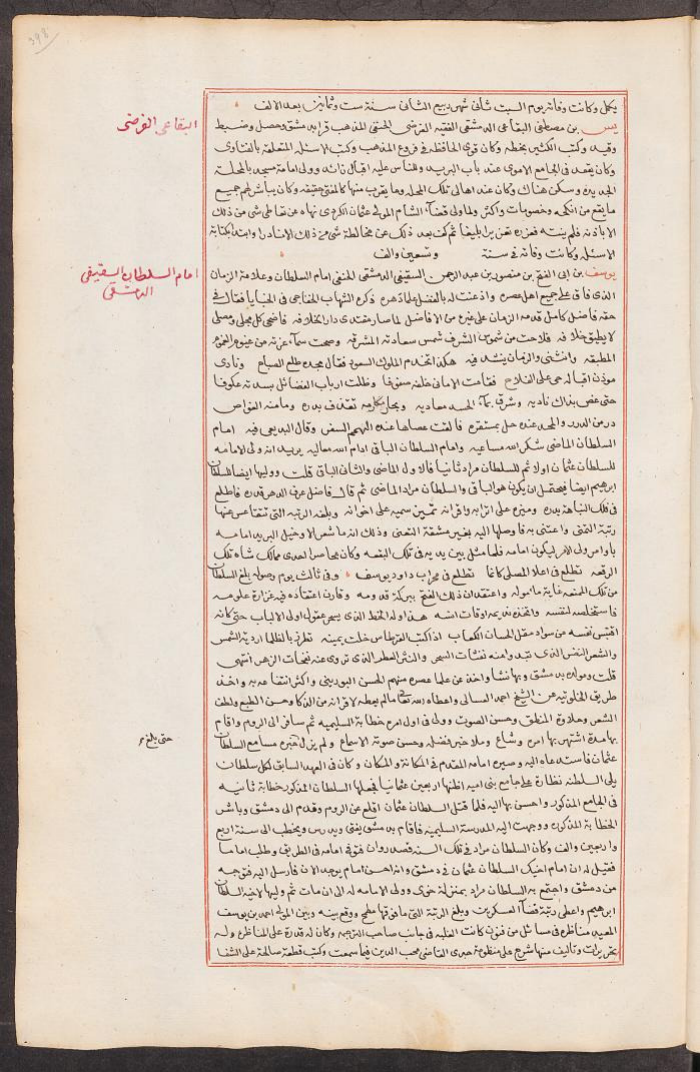 398
يكمل وكانت وفاته يوم السبت ثاني شهر ربيع الثاني سنة ست وثمانين بعد الالف
البقاعي الفرضي
يس بن مصطفى البقاعي الدمشقي الفقيه الفرضي الحنفي المذهب قرا بدمشق وحصل وضبط
وقيد وكتب الكثير بخطه وكان قوي الحافظة في فروع المذهب وكتب الاسئلة المتعلقة بالفتاوى
وكان يقعد في الجامع الاموي عند باب البريد وللناس عليه اقبال زائد وولي امامة مسجد بالمحلة
الجديدة وسكن هناك وكان عند اهالي تلك المحلة وما يقرب منها كالمفتي حقيقة وكان يباشر لهم جميع
ما يقع من انكحة وخصومات واكثر ولما ولي قضاء الشام المولى عثمان الكردي نهاه عن تعاطي شي من ذلك
الا باذنه فلم ينته فعزره تعزيرا بليغا ثم كف بعد ذلك عن مخالطة شي من ذلك الا نادرا وابتدا بكتابة
الاسئلة وكانت وفاته في سنة وتسعين والف
امام السلطان السقيفي الدمشقي
يوسف بن ابي الفتح بن منصور بن عبد الرحمن السقيفي الدمشقي الحنفي امام السلطان وعلامة الزمان
الذي فاق على جميع اهل عصره واذعنت له بالفضل علما دهره ذكره الشهاب الخفاجي في الخبايا فقال في
حقه فاضل كامل قدمه الزمان على غيره من الافاضل لما صار مقتدى دار الخلافة فاضحى كل مجلي ومصلي
لا يطيق خلافه فلاحت من شموس الشرف شمس سعادته المشرقة وصحت سماء عزته من غيوم الغموم
المطبقة وانشني والزمان ينشد فيه هكذا تخدم الملوك السعود فقال مجده طلع الصباح ونادى
موذن اقباله حي على الفلاح فقامت الاماني خلفه صفوفا وظلت ارباب الفضائل بسدته عكوفا
حتى غص بذاك ناديه وشرق بماء الحسد معاديه وببحار مكارمه تقذف بدره ومامنه الغواص
در من الدرر والمجد عنده حل بمستقره فالقت عصاها عنده الهمم السفر وقال البديعي فيه امام
السلطان الماضي شكر الله مساعيه وامام السلطان الباقي ادام الله معاليه يريد انه ولي الامامة
للسلطان عثمان اولا ثم للسلطان مراد ثانيا فالاول الماضي والثاني الباقي قلت ووليها ايضا للسلطان
ابرهيم ايضا فيحتمل ان يكون هو الباقي والسلطان مراد الماضي ثم قال فاضل عرف الدهر قدره فاطلع
في فلك النباهة بدره وميزه على اترابه واقرانه تمييز سميه على اخوانه وبلغه الرتبة التي تتقاعس عنها
رتبة التمني واعتنى به فاوصلها اليه بغير مشقة التعني وذلك انه ما شعر الا وخيل البريد امامه
باوامر ولي الامر ليكون امامه فلما مثل بين يديه في تلك البقعة وكان محاصرا لعدى ممالك شاه تلك
الرقعة تطلع في اعلا المصلى كانما تطلع في محراب داود يوسف وفي ثالث يوم وصوله بلغ السلطان
من تلك المنعة غاية ماموله واعتقد ان ذلك الفتح ببركة قدومه وقارن اعتقاده فيه غزارة علومه
فاستخلصه لنفسه واتخذه نديمه اوقات انسه هذا وله الخط الذي يسحر عقول اولي الالباب حتى كانه
اقتبس نفسه من سواد مقل الحسان الكعاب اذا كتب القرطاس خلت يمينه تطرز بالظلما اردية الشمس
والشعر النفيس الذي تبدو امنه نفثات السحر والنثر العطر الذي تروى عنه نفحات الزهر انتهى
قلت ومولده بدمشق وبها نشا واخذ عن علما عصره منهم الحسن البوريني واكثر انتفاعه به واخذ
طريق الخلوتية عن الشيخ احمد العسالي واعطاه الله تعالى ما لم يعطه لاقرانه من الذكا وحسن الطبع ولطف
الشعر وحلاوة المنطق وحسن الصوت وولي في اول امره خطابة السليمية ثم سافر الى الروم واقام
بها مدة اشتهر بها امره وشاع وملا خبر فضله وحسن صوته الاسماع ولم يزل خبره مسامع السلطان
حتى بلغ
عثمان فاستدعاه اليه وصيره امامه المقدم في المكانة والمكان وكان في العهد السابق لكل سلطان
يلي السلطنة نظارة على جامع بني امية اظنها اربعين عثمانيا فجعلها السلطان المذكور خطابة ثانية
في الجامع المذكور واحسن بها اليه فلما قتل السلطان عثمان اقلع عن الروم وقدم الى دمشق وباشر
الخطابة المذكورة ووجهت اليه المدرسة السليمية فاقام بدمشق يفتي ويدرس ويخطب الى سنة اربع
واربعين والف وكان السلطان مراد في تلك السنة قصد روان فتوفي امامه في الطريق وطلب اماما
فقيل له ان امام اخيك السلطان عثمان في دمشق وانه احسن امام يوجد الان فارسل اليه فتوجه
من دمشق واجتمع به السلطان مراد بمنزلة خوي وولي الامامة له الى ان مات ثم وليها لاخيه السلطان
ابرهيم واعطي رتبة قضاء العسكرين وبلغ الرتبة التي ما فوقها مطمح ووقع بينه وبين المولى احمد بن يوسف
المعيد مناظرة في مسائل من فنون كانت الغلبة في جانب صاحب الترجمة وكان له قدرة على المناظرة وله
تحريرات وتاليف منها شرح على منظومة جدي القاضي محب الدين فيما سمعت وكتب قطعة صالحة على الشفا